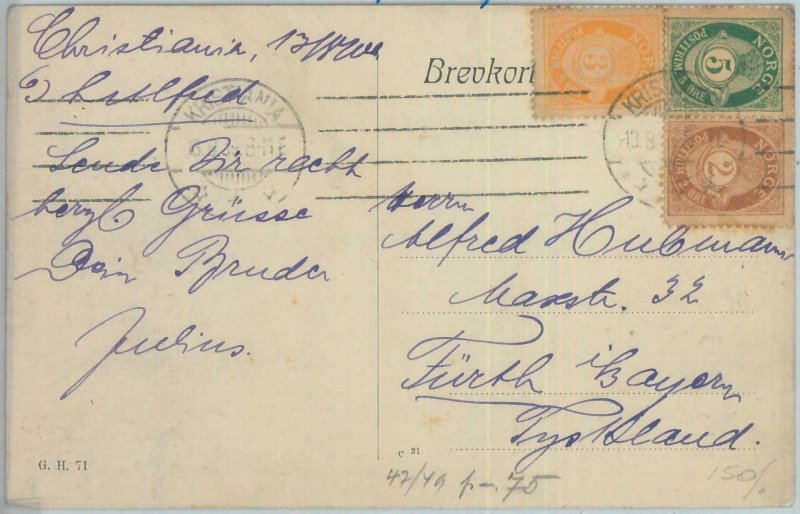 Christiania, 13/8
Brevkort
NORGE
POSTFRIM.
3
NORGE
POSTFRIM.
5
5 ØRE
NORGE
POSTFRIM.
2
ØRE
KRISTIANIA
KRIST
Sende Dir recht
herzl. Grüsse
Dein Bruder
Julius.
Herrn
Alfred Hubmann
Maxstr. 32
Fürth i/Bayern
Tyskland.
G. H. 71
c 21
47/49 p-. 75
150/.